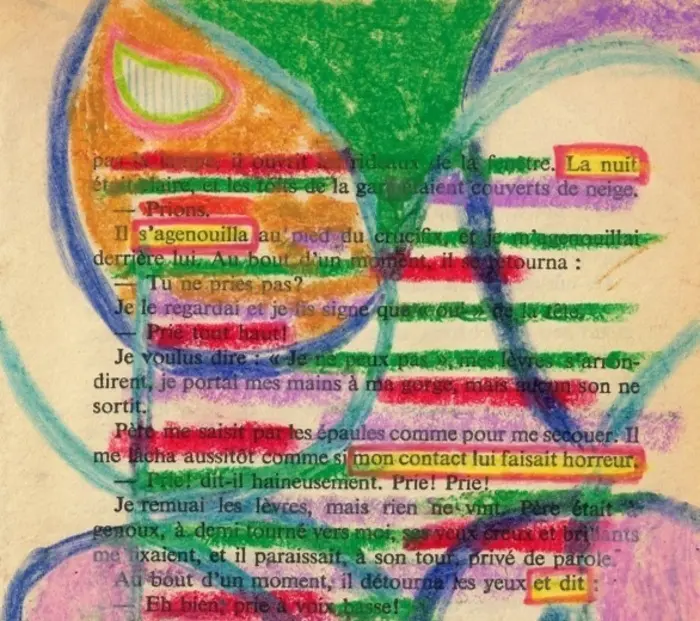 pas la lampe, il ouvrit les rideaux de la fenêtre. La nuit
était claire, et les toits de la gare étaient couverts de neige.
— Prions.
Il s'agenouilla au pied du crucifix, et je m'agenouillai
derrière lui. Au bout d'un moment, il se retourna :
— Tu ne pries pas?
Je le regardai et je fis signe que « oui » de la tête.
— Prie tout haut!
Je voulus dire : « Je ne peux pas », mes lèvres s'arron-
dirent, je portai mes mains à ma gorge, mais aucun son ne
sortit.
Père me saisit par les épaules comme pour me secouer. Il
me lâcha aussitôt comme si mon contact lui faisait horreur.
— Prie! dit-il haineusement. Prie! Prie!
Je remuai les lèvres, mais rien ne vint. Père était à
genoux, à demi tourné vers moi, ses yeux creux et brillants
me fixaient, et il paraissait, à son tour, privé de parole.
Au bout d'un moment, il détourna les yeux et dit :
— Eh bien, prie à voix basse!